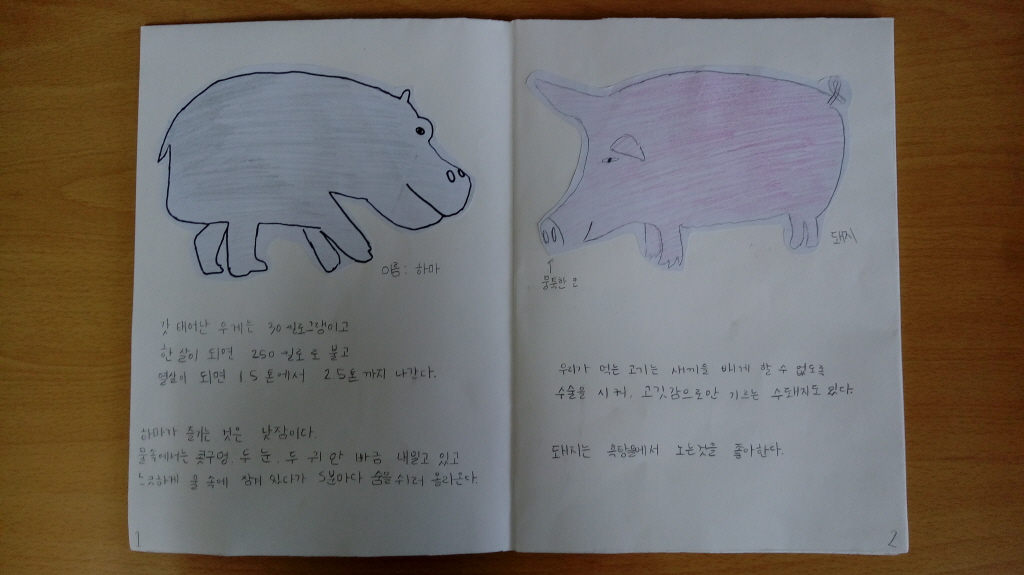 이름: 하마
갓 태어난 무게는 30 킬로그램이고
한 살이 되면 250 킬로로 불고
열살이 되면 15톤에서 25톤까지 나간다.
하마가 즐기는 것은 낮잠이다.
물속에서는 콧구멍, 두 눈, 두 귀만 빠끔 내밀고 있고
느긋하게 물 속에 잠겨 있다가 5분마다 숨을 쉬러 올라온다.
1
돼지
뭉툭한 코
우리가 먹는 고기는 새끼를 배게 할 수 없도록
수술을 시켜, 고깃감으로만 기르는 수퇘지도 있다.
돼지는 흙탕물에서 노는것을 좋아한다.
2